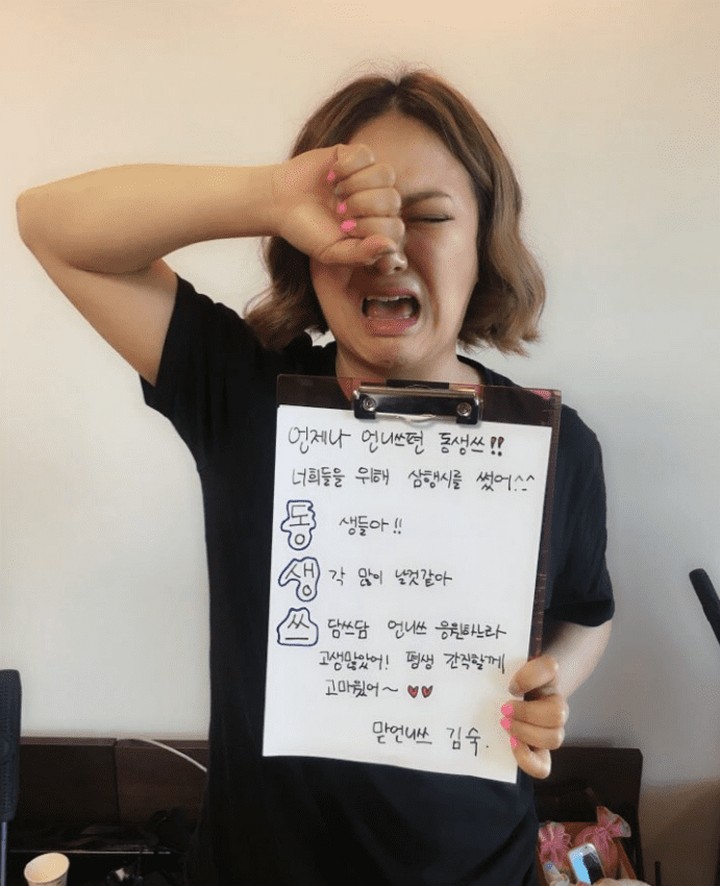 언제나 언니쓰편 동생쓰!!
너희들을 위해 삼행시를 썼어^^
동 생들아!!
생 각 많이 날것같아
쓰 담쓰담 언니쓰 응원하느라
고생많았어! 평생 간직할게
고마웠어~ ♥♥
맏언니쓰 김숙.